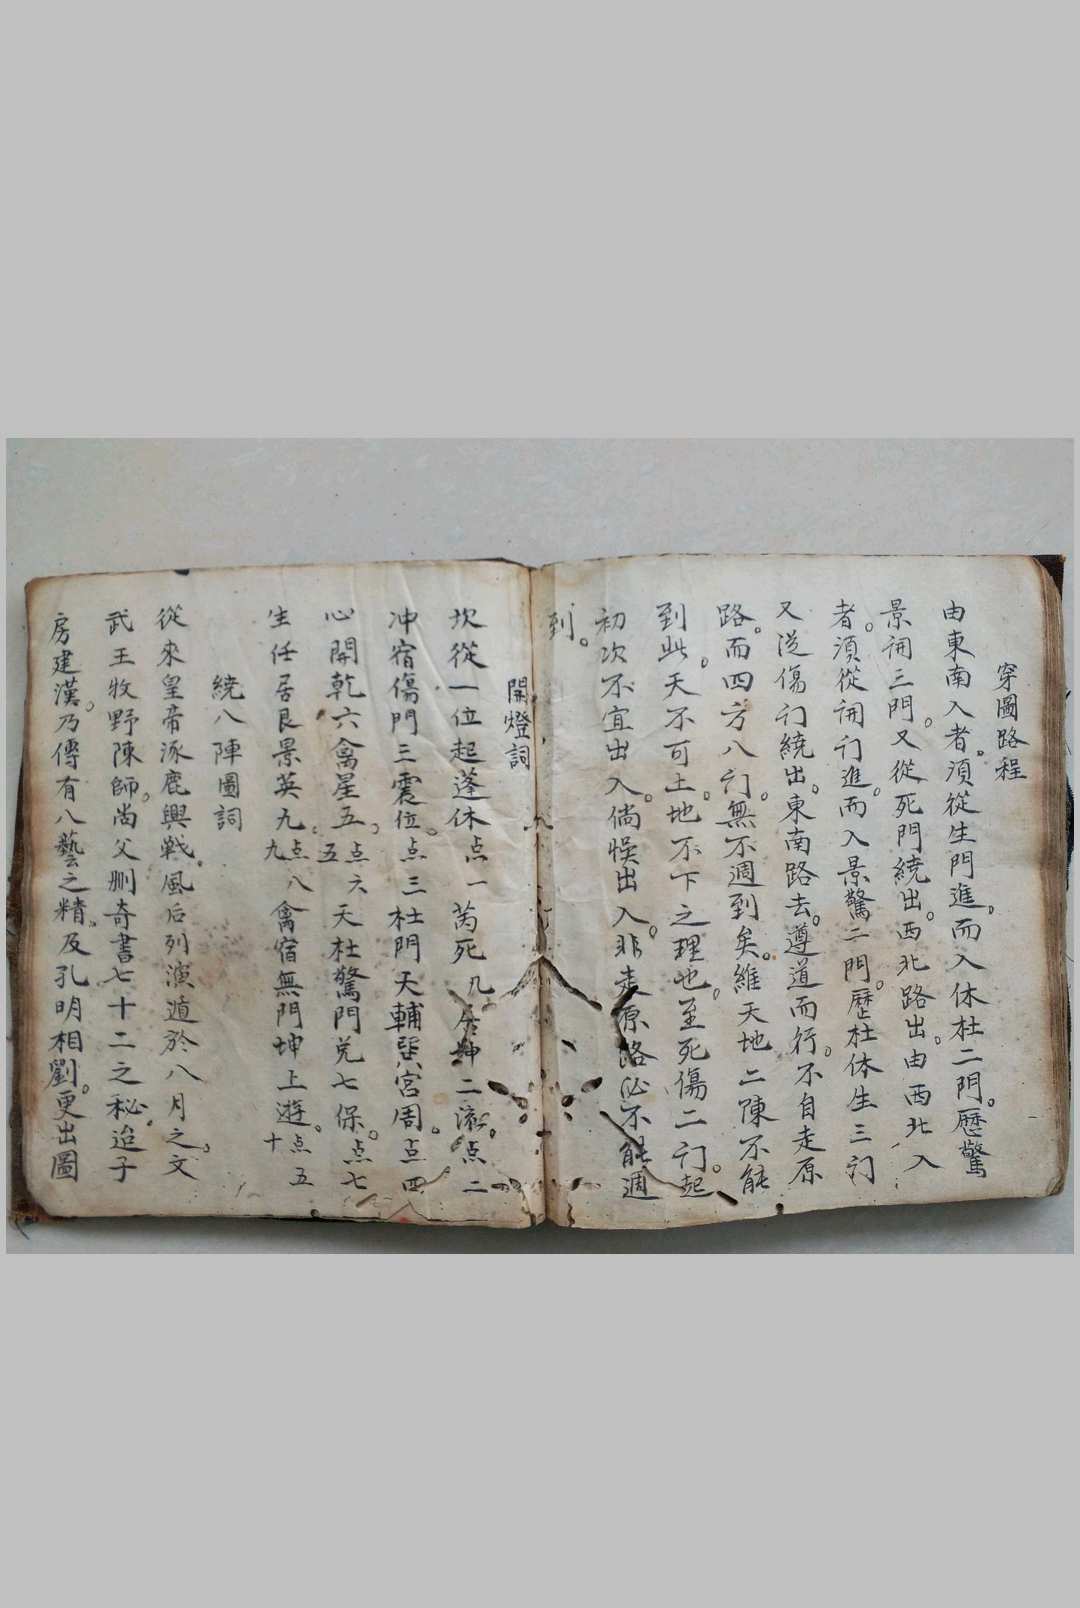 穿圖路程
由東南入者。須從生門進。而入休杜二門。歷驚
景開三門。又從死門繞出。西北路出。由西北入
者。須從開门進。而入景驚二門。歷杜休生三门
又從傷门繞出。東南路去。遵道而行。不自走原
路。而四方八门。無不週到矣。維天地二陳不能
到此。天不可土。地不下之理也。至死傷二门。起
初次不宜出入。倘悮出入。非走原路必不能週
到。
開燈詞
坎從一位起蓬休点一芮死居坤二流。点二
冲宿傷門三震位。点三杜門天輔巽宮周。点四
心開乾六禽星五。点六五天柱驚門兌七保。点七
生任居艮景英九。点八九禽宿無門坤上遊。点五十
繞八陣圖詞
從來皇帝涿鹿興戰。風后列演遁於八月之文。
武王牧野陳師。尚父刪奇書七十二之秘。迨子
房建漢。乃傳有八藝之精。及孔明相劉。更出圖